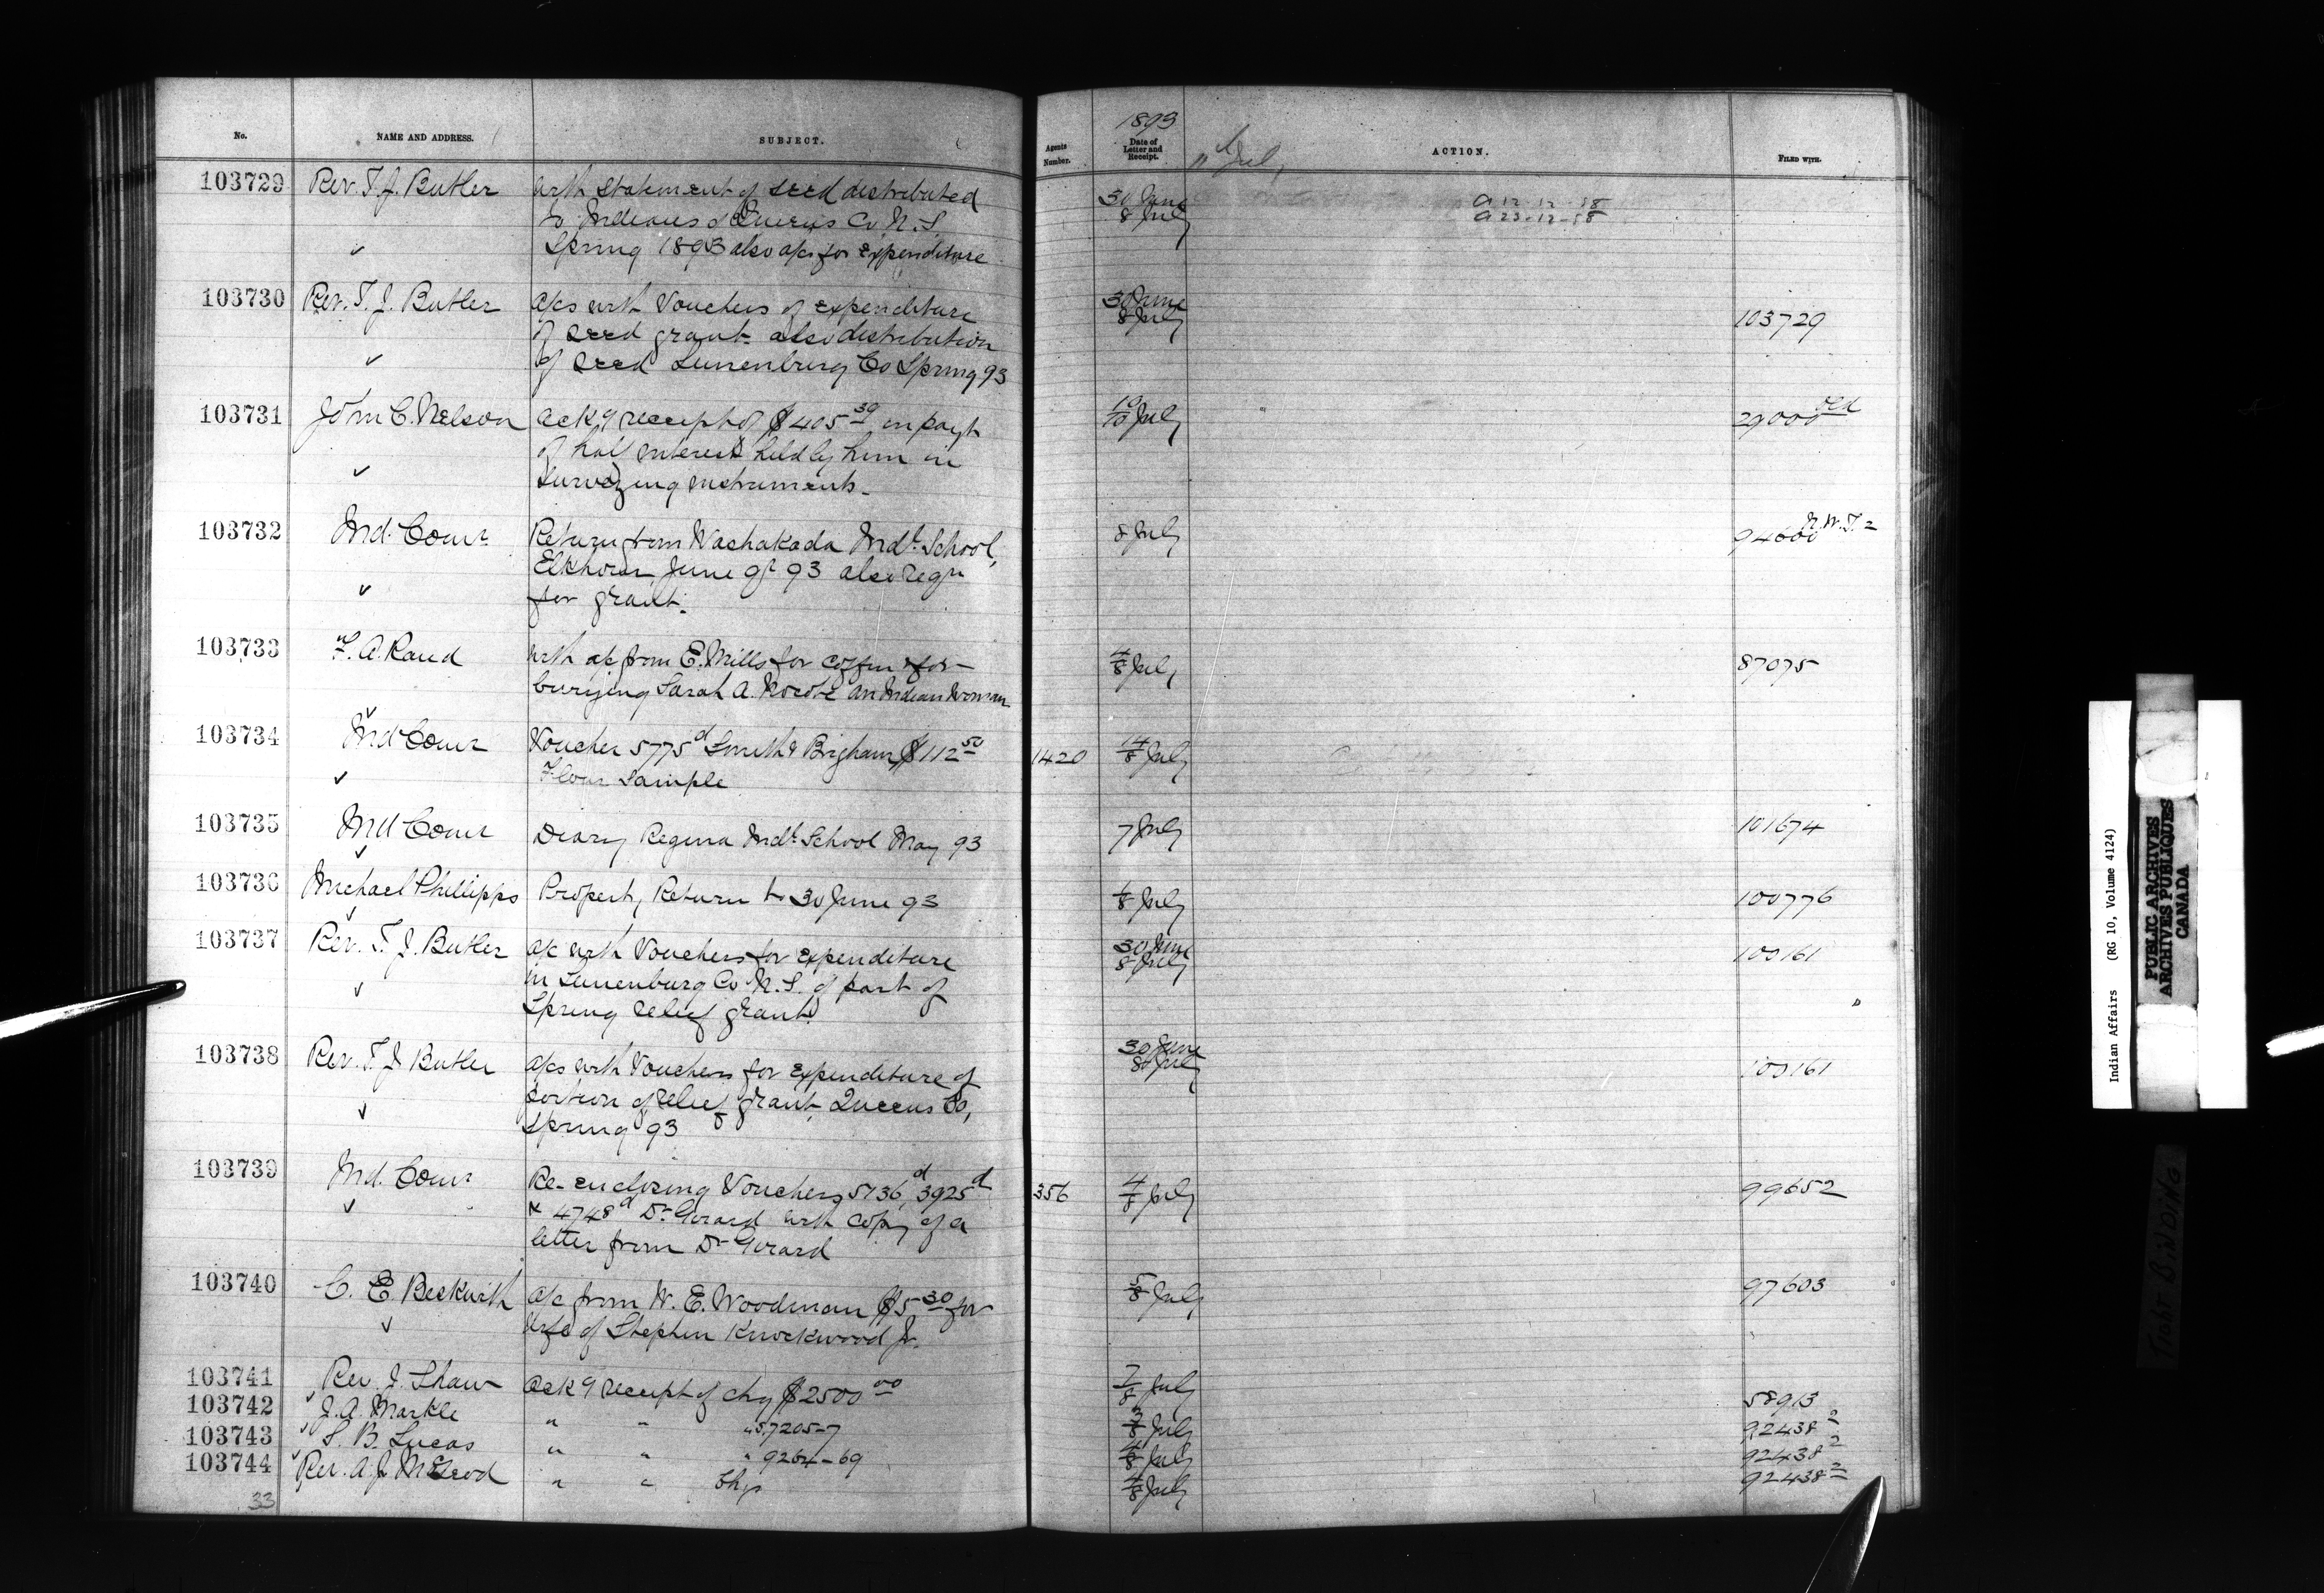 No. NAME AND ADDRESS. SUBJECT. Agents Number. 1893 Date of Letter and Receipt. ACTION. FILED WITH.
11th July
103729 Rev. T. J. Butler with statement of seed distributed 30 June
to Indians of Queens Co. N.S. 8 July a 12-12-58
a 23-12-58
Spring 1893 also a/cs for expenditure
103730 Rev. T. J. Butler a/cs with Vouchers of expenditure 30 June
of seed grant also distribution 8 July 103729
of seed Lunenburg Co Spring 93
103731 John C. Nelson ackg receipt of $405 39 in payt 10/10 July 29000 old
of half interest held by him in
Surveying instruments.
103732 Ind. Comr Return from Washakada Indl. School, 8 July 94600 N.W.T. 2
Elkhorn June qr 93 also reqn
for grant.
103733 F. A. Rand with a/c from E. Mills for coffin & for 4/8 July 87075
burying Sarah A. an Indian Woman
103734 Ind Comr Voucher 5775 d Smith & Brigham $112 50 1420 14/8 July
Flour Sample
103735 Ind Comr Diary Regina Indl. School May 93 7 July 101674
103736 Michael Phillipps Property Return to 30 June 93 1/8 July 100776
103737 Rev. T. J. Butler a/c with Vouchers for expenditure 30 June
in Lunenburg Co. N.S. of part of 8 July 100161
Spring relief grant
103738 Rev. T. J Butler a/cs with Vouchers for expenditure of 30 June
portion of relief grant Queens Co, 8 July 100161
Spring 93
103739 Ind. Comr Re-enclosing Vouchers 5736 d, 3925 d 356 4/8 July 99652
& 4748 d Dr Girard with copy of a
letter from Dr Girard
103740 C. E. Beckwith a/c from W. E. Woodman $5 30 for 5/8 July 97603
wife of Stephen Knockwood Jr.
103741 Rev. J. Shaw ackg receipt of chq $2500 00 7/8 July 58913
103742 J. A. Markle " " " 57205-7 3/8 July 92438 2
103743 S. B. Lucas " " " 9264-69 4/8 July 92438 2
103744 Rev. A. J. McLeod " " Chq 4/8 July 92438 2
33
Indian Affairs (RG 10, Volume 4124)
PUBLIC ARCHIVES
ARCHIVES PUBLIQUES
CANADA
TIGHT BINDING